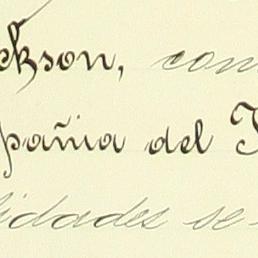 ckson, com
pañia del F
lidades se